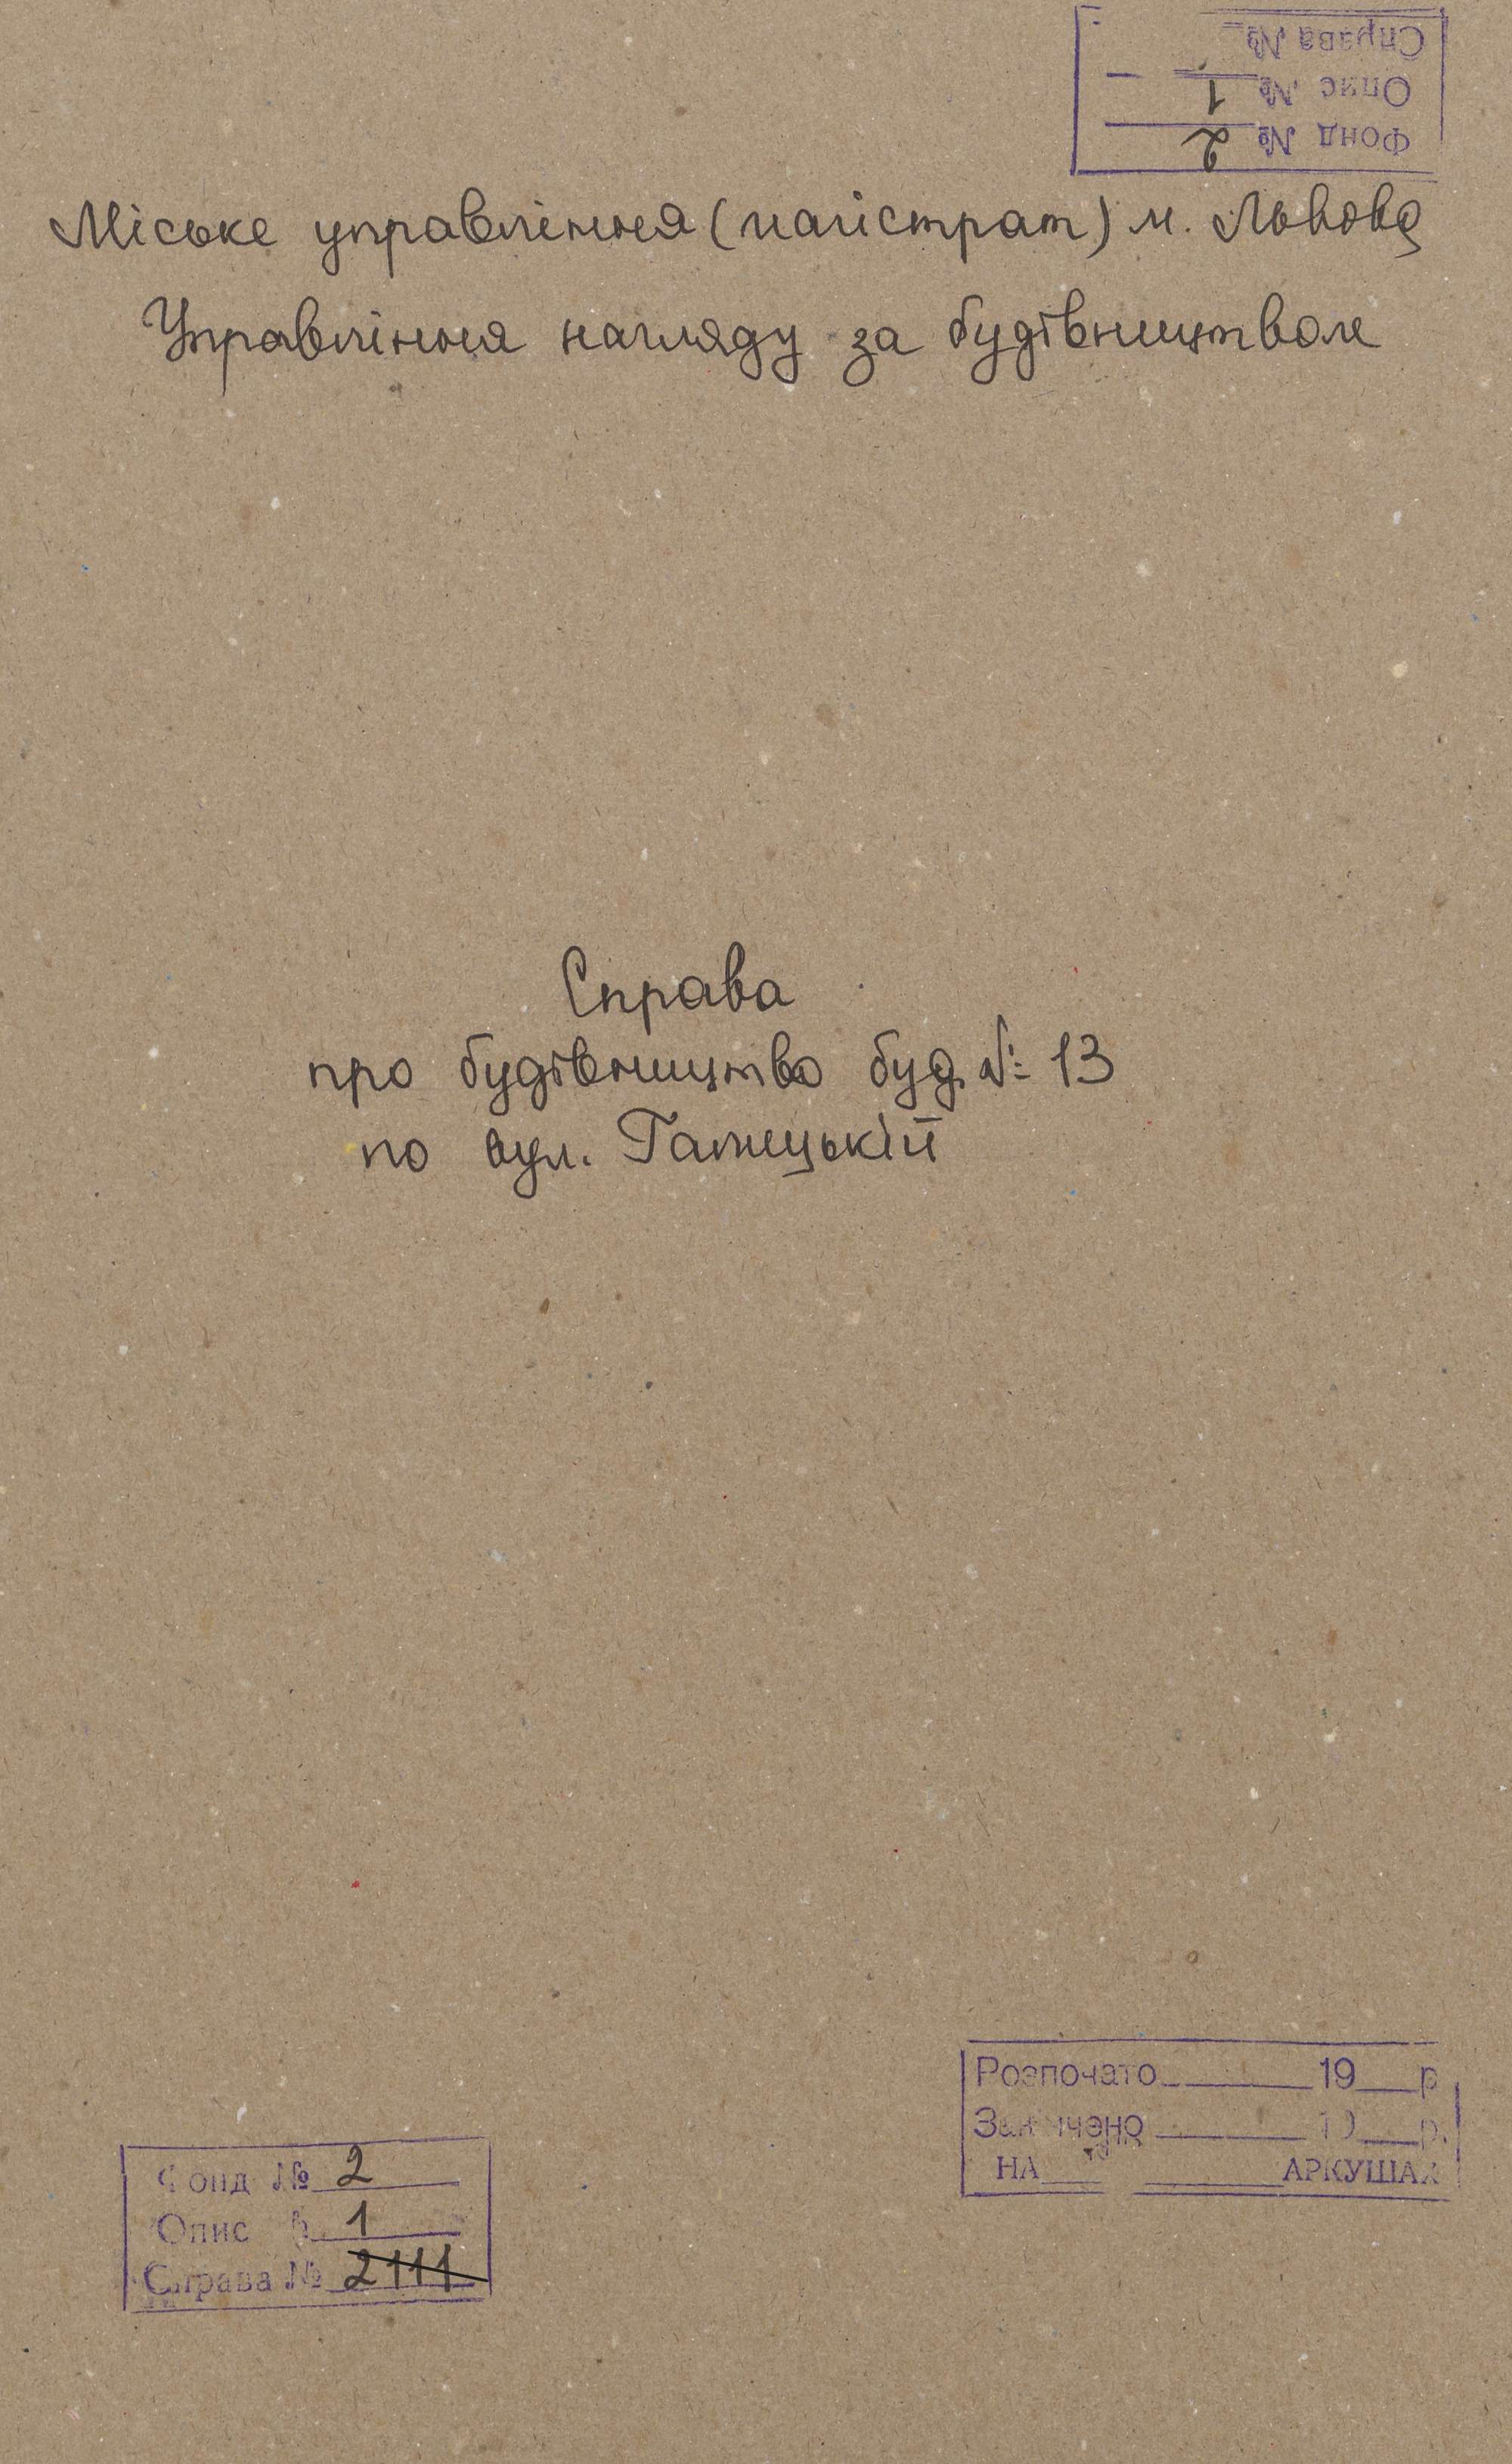 Справа №
Опис № 1
Фонд № 2
Міське управління (магістрат) м. Львова
Управління нагляду за будівництвом
Справа
про будівництво буд. № 13
по вул. Галицькій
Розпочато 19 р
Закінчено 19 р.
НА АРКУШАХ
Фонд № 2
Опис № 1
Справа № 2111